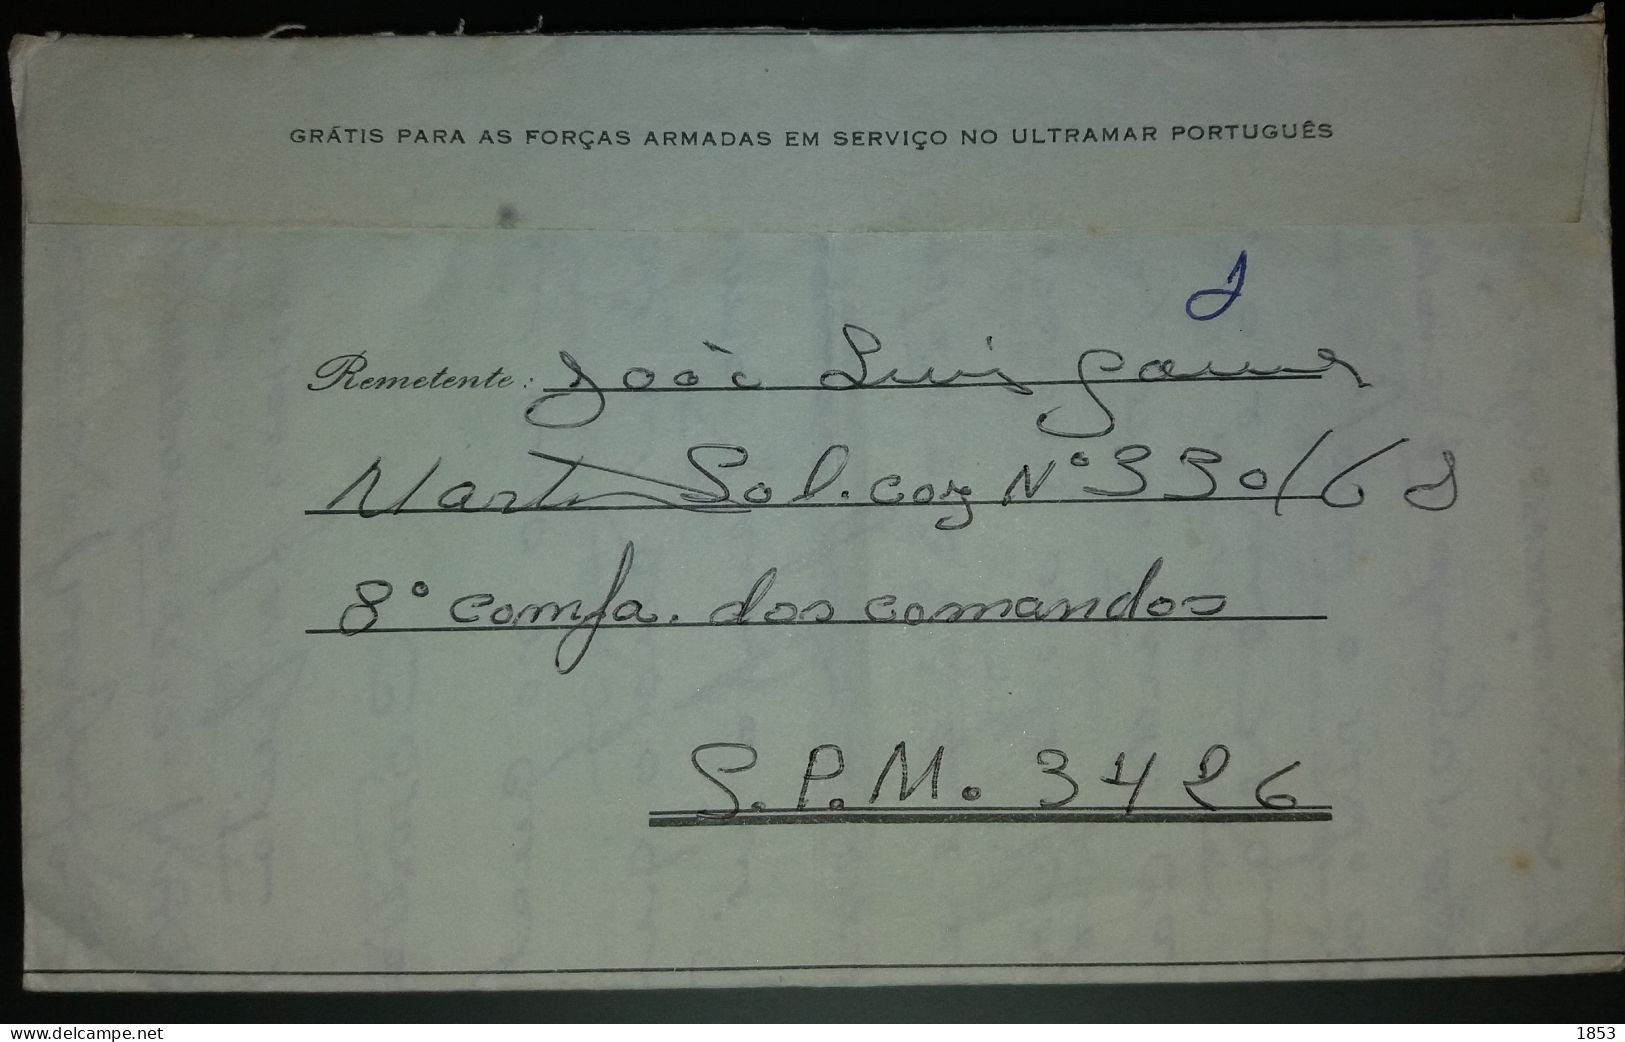 GRÁTIS PARA AS FORÇAS ARMADAS EM SERVIÇO NO ULTRAMAR PORTUGUÊS
Remetente: João Luis
Sol. coz Nº 330/68
8º compa. dos comandos
S.P.M. 3426
www.delcampe.net
1853